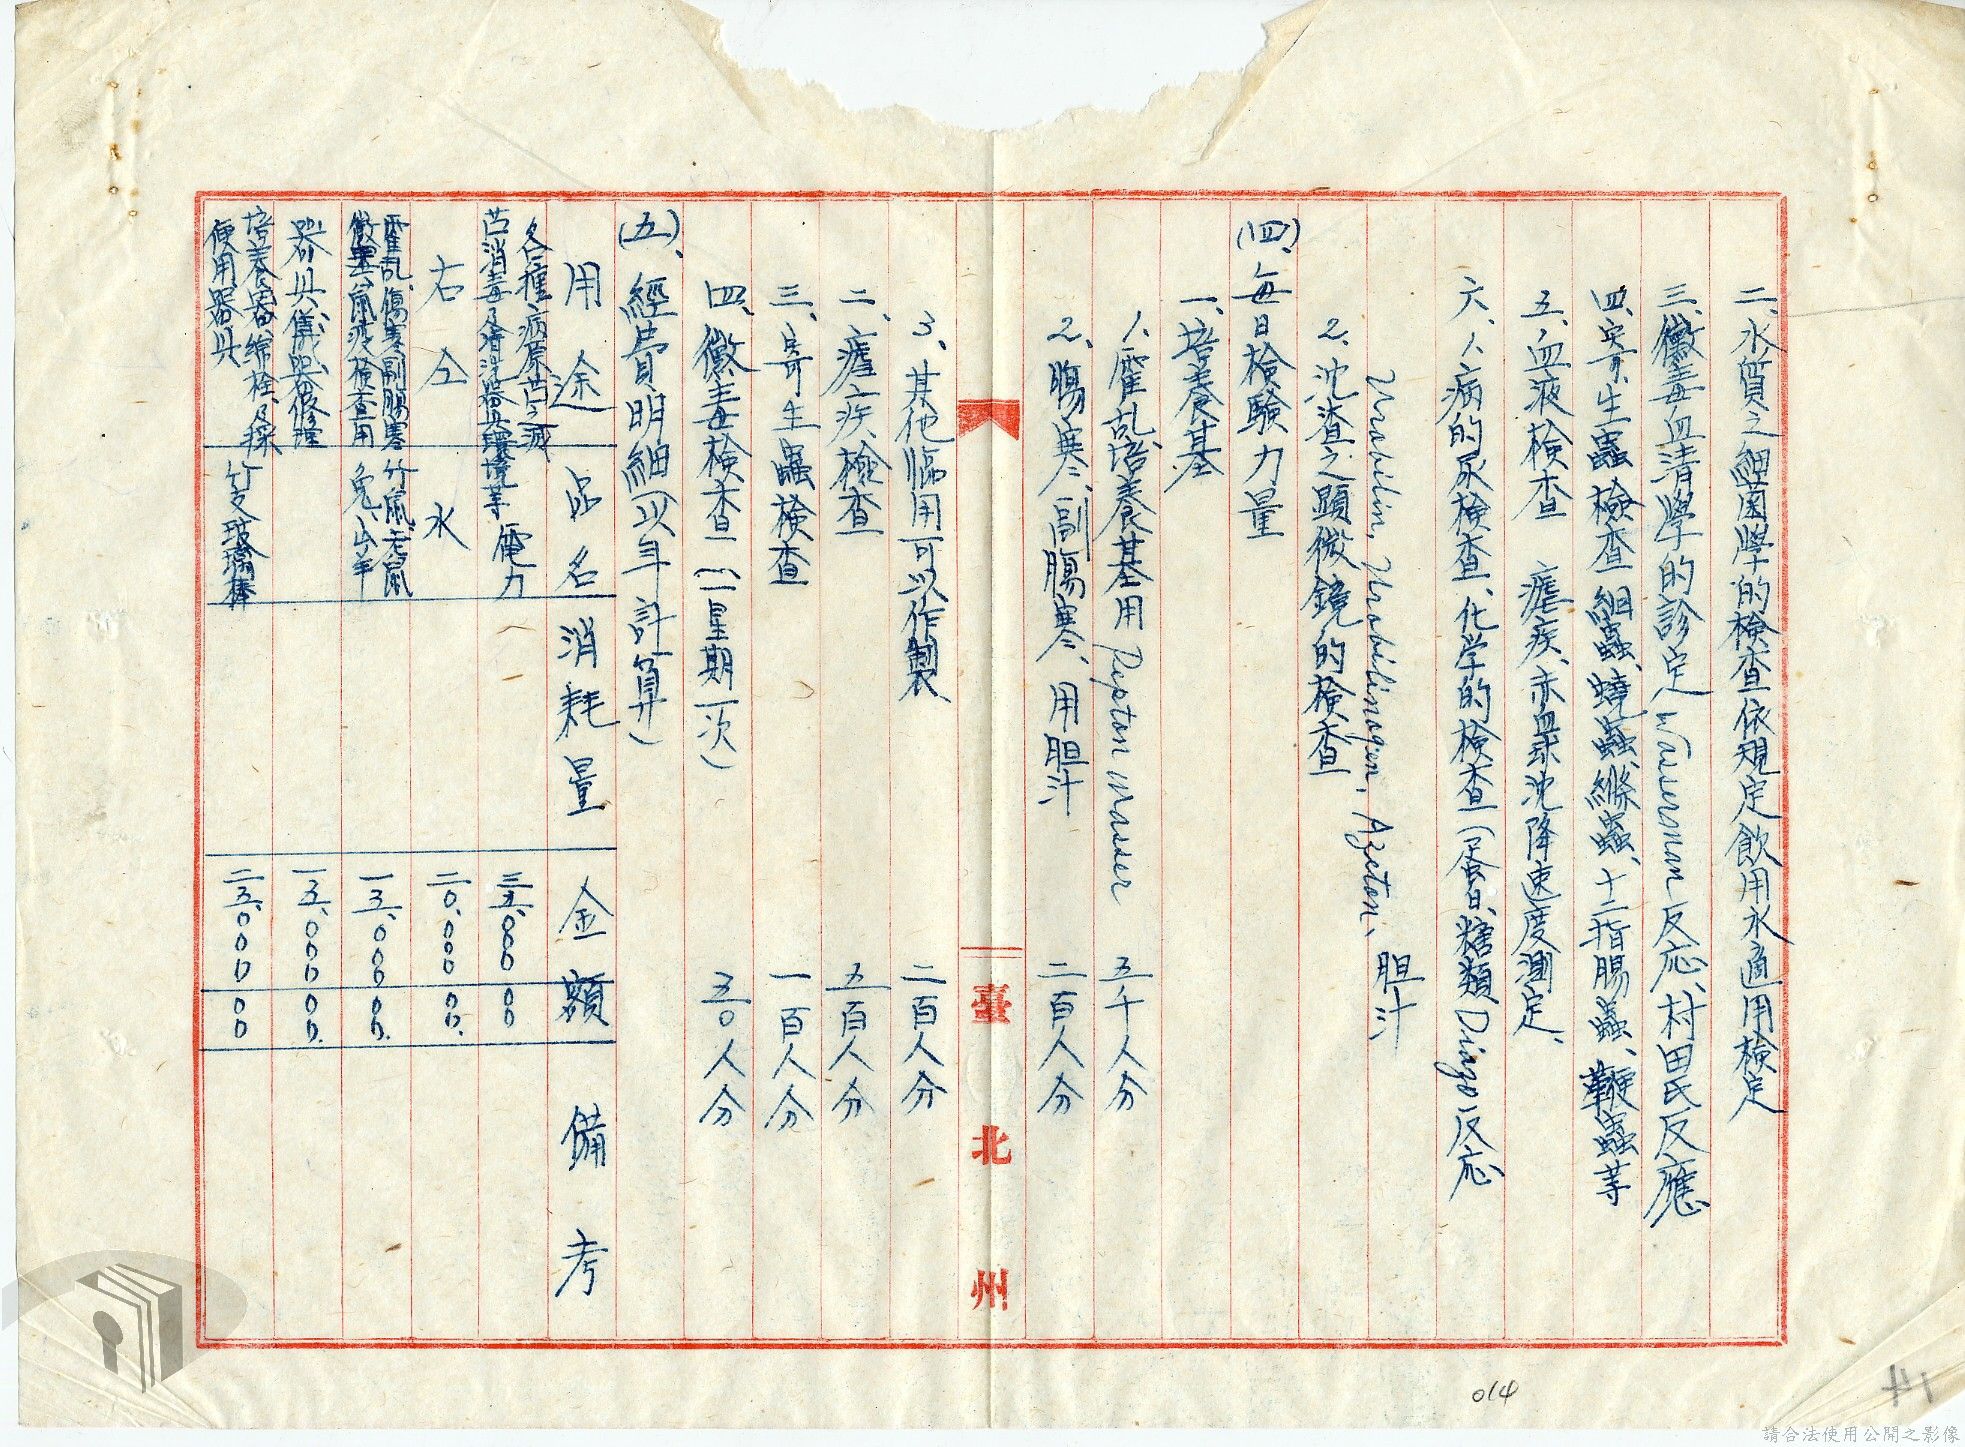 二、水質之細菌學的檢查依規定飲用水適用檢定
三、黴毒血清學的診定 Wasserman 反応、村田氏反應
四、寄生蟲檢查 蛔蟲、蟯蟲、縧蟲、十二指腸蟲、鞭蟲等
五、血液檢查 瘧疾、赤血球沈降速度測定、
六、1、病的尿檢查、化学的檢查(蛋白、糖類 Diazo 反応
Urobilin, Urobilinogen, Azeton, 胆汁、
2、沈渣之顯微鏡的檢查
(四)、每日檢驗力量
一、培養基
1、霍乱培養基用 Pepton Wasser 五千人分
2、腸寒、副腸寒、用胆汁 二百人分
臺北州
3、其他臨用可以作製 二百人分
二、瘧疾檢查 五百人分
三、寄生蟲檢查 一百人分
四、黴毒檢查(一星期一次) 五〇人分
(五)、經費明細(以年計算)
用途 品名 消耗量 金額 備考
各種病原菌之滅菌消毒及清洗器具環境等 電力 000 00
右仝 水 二0,000 00
霍乱、傷寒副腸寒黴毒、鼠疫檢查用 竹鼠、天鼠兔、山羊 一三,000 00
器具、儀器修理 一五,000 00
培養器綿栓及採便用器具 竹支玻璃棒 二五,000 00
014
14
請合法使用公開之影像